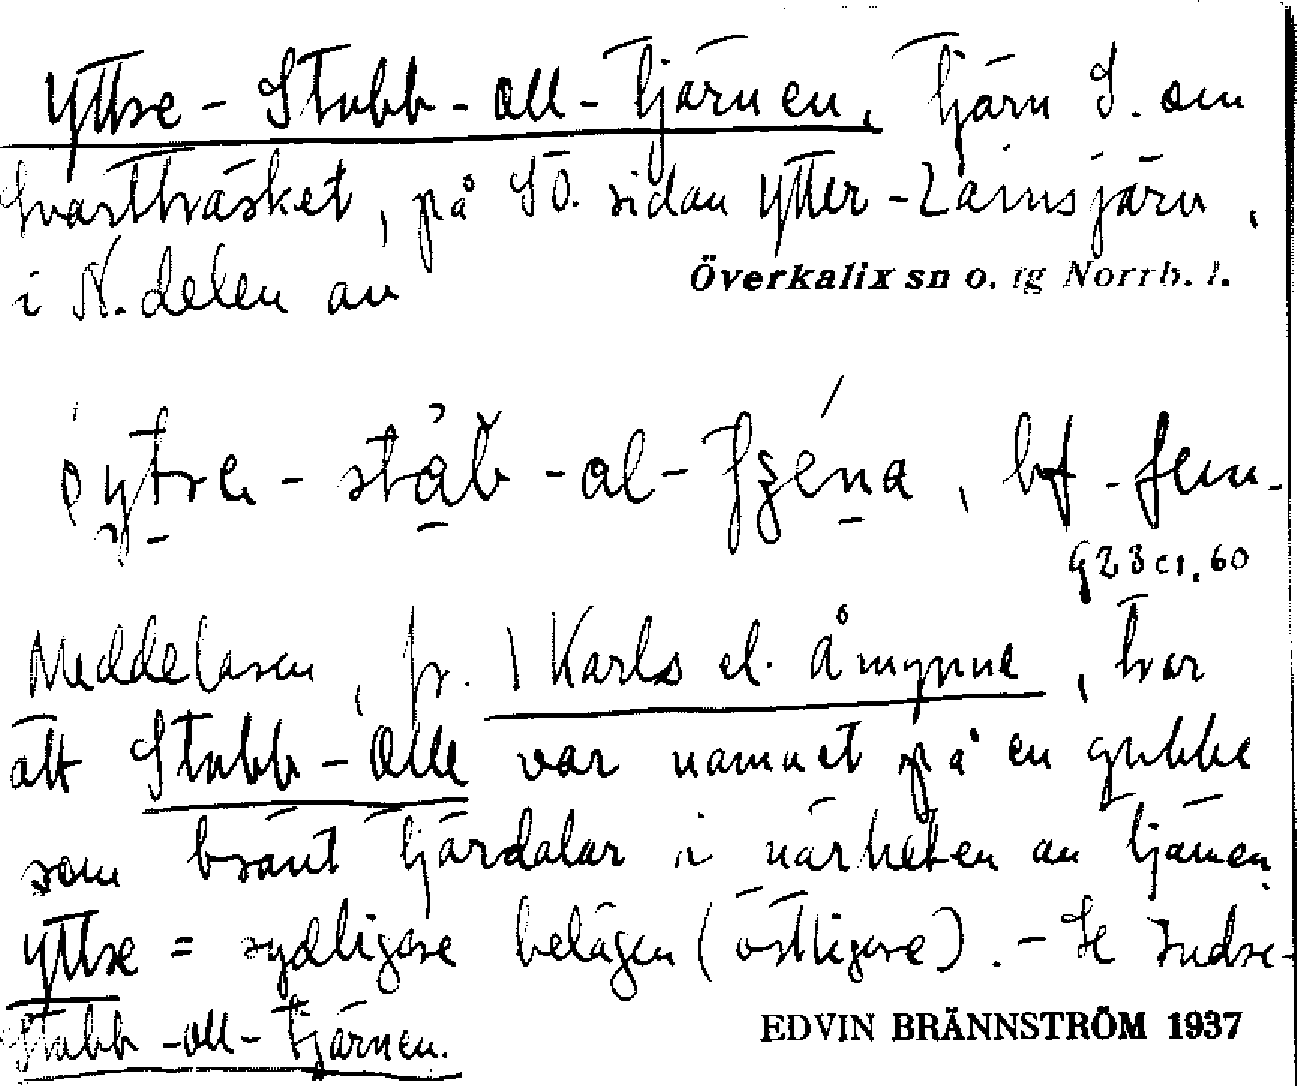 Yttre-Stubb-Oll-tjärnen, Tjärn S. om
Svartträsket, på SÖ. sidan Ytter-Lainsjärv,
i N. delen av
Överkalix sn o. tg Norrb. l.
bf. fem.
Meddelaren, fr. Karls el. Åmynne, tror
att Stubb-Olle var namnet på en gubbe
som bränt tjärdalar i närheten av tjärnen.
Yttre = sydligare belägen (östligare). - Se Indre-
Stubb-Oll-tjärnen.
EDVIN BRÄNNSTRÖM 1937